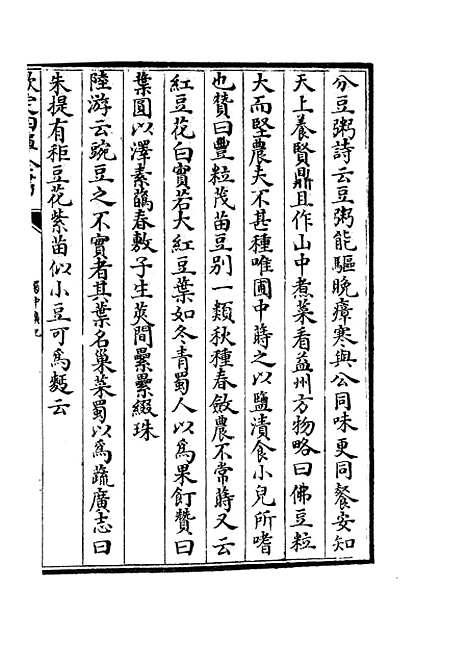 分豆粥詩云豆粥能驅晚瘴寒與公同味更同餐安知
天上養賢鼎且作山中煮菜看益州方物略曰佛豆粒
大而堅農夫不甚種唯圃中蒔之以鹽漬食小兒所嗜
也贊曰豐粒茂苗豆別一類秋種春斂農不常蒔又云
紅豆花白實若大紅豆葉如冬青蜀人以為果飣贊曰
葉圓以澤素蘤春敷子生莢間纍纍綴珠
陸游云豌豆之不實者其葉名巢菜蜀以為蔬廣志曰
朱提有秬豆花紫苗似小豆可為麪云